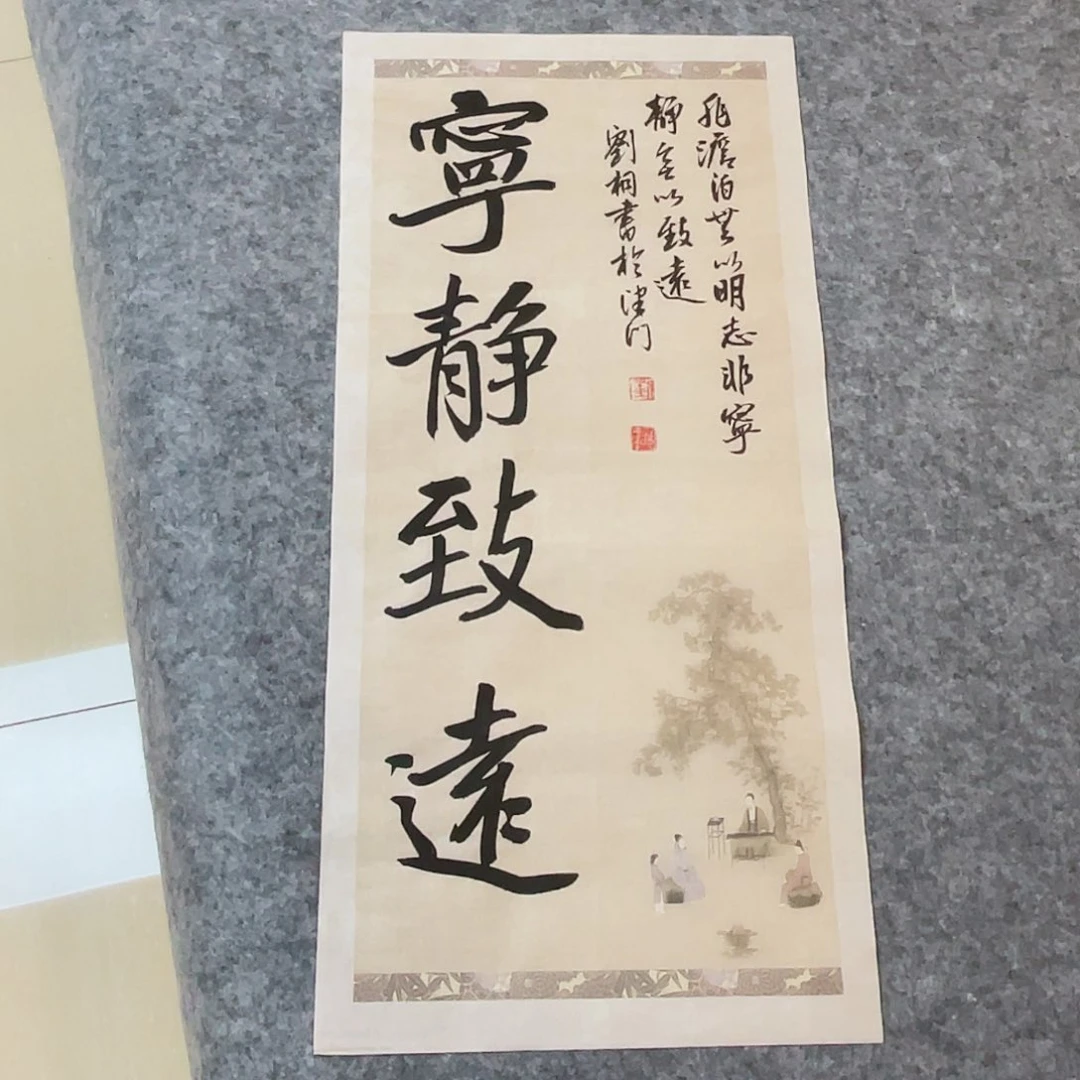 寧静致遠
非澹泊無以明志非寧
静無以致遠
劉桐書於津門